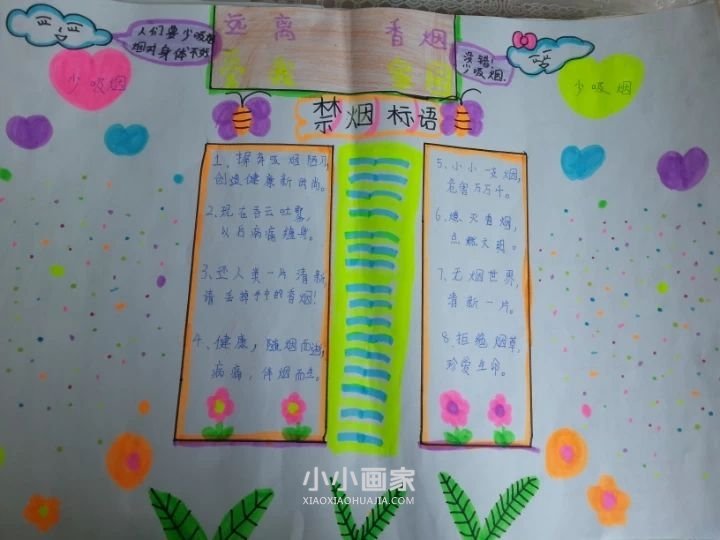 远离 香烟
人们要少吸烟
烟对身体不好
没错!
少吸烟.
少吸烟
少吸烟
禁烟标语
1、摒弃吸烟陋习,
创造健康新时尚。
2、现在吞云吐雾,
以后病痛缠身。
3、还人类一片清新,
请丢掉手中的香烟!
4、健康,随烟而逝,
病痛,伴烟而生。
5、小小一支烟,
危害万万千。
6、熄灭香烟,
点燃文明。
7、无烟世界,
清新一片。
8、拒绝烟草,
珍爱生命。
小小画家
XIAOXIAOHUAJIA.COM